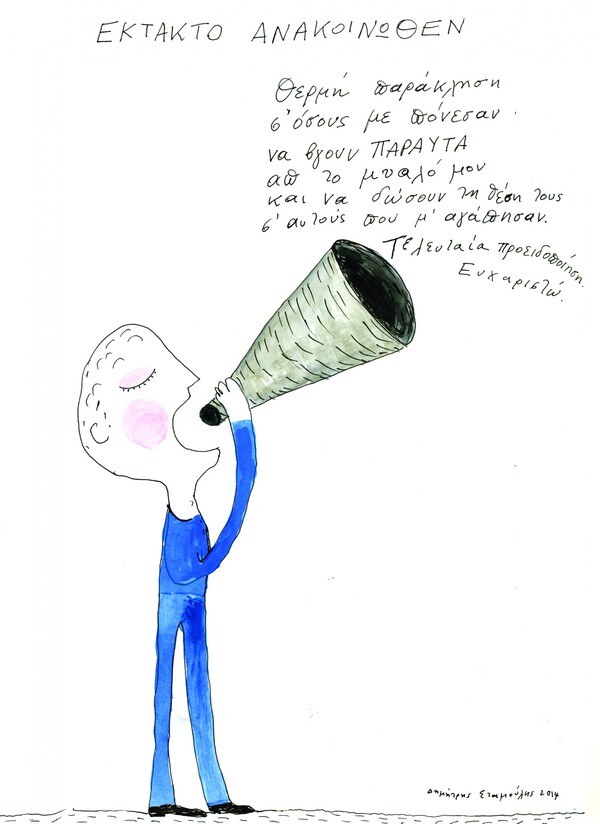 ΕΚΤΑΚΤΟ ΑΝΑΚΟΙΝΩΘΕΝ
Θερμή παράκληση
σ' όσους με πόνεσαν.
να βγουν ΠΑΡΑΥΤΑ
απ το μυαλό μου
και να δώσουν τη θέση τους
σ' αυτούς που μ' αγάπησαν.
Τελευταία προειδοποίηση.
Ευχαριστώ.
Δημήτρης Σταμούλης 2014